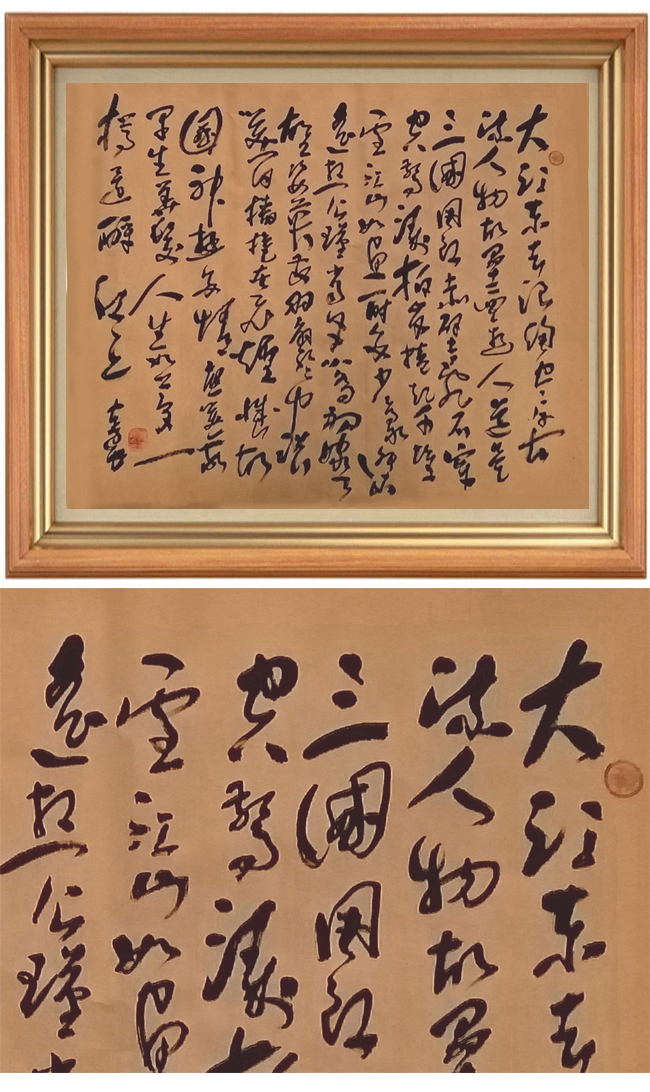 大江东去浪淘尽千古
流人物故壘西邊人道是
三國周郎赤壁乱石穿
空驚濤拍岸捲起千堆
雪江山如畫一時多少豪傑
遙想公瑾當年小喬初嫁了
雄姿英發羽扇綸巾談
笑间檣櫓灰飛煙滅故
國神遊多情應笑我
早生華髮人生如夢一
樽還酹江月
大江东去
流人物故壘
三國周郎
空驚濤
雪江山如畫
遙想公瑾